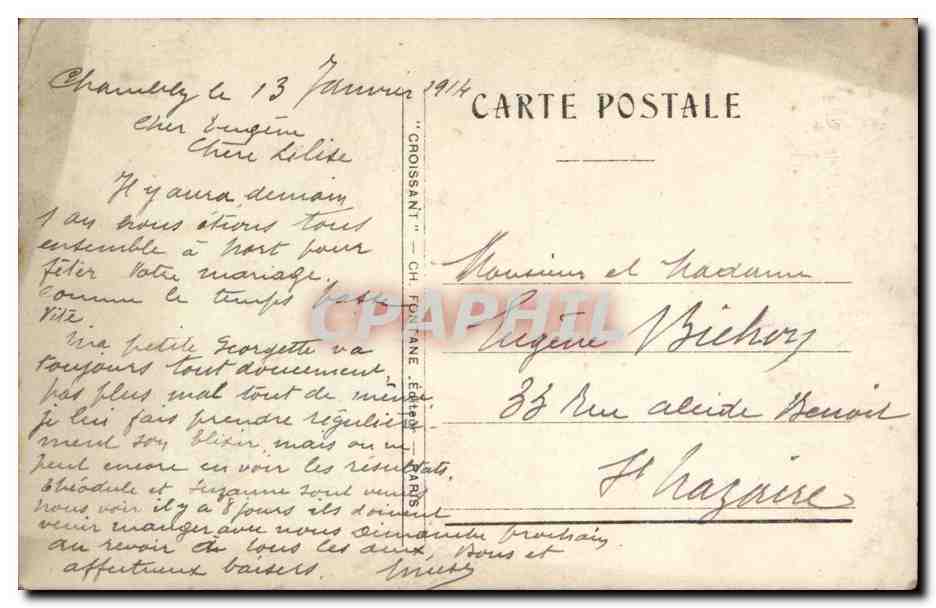 Chambly le 13 Janvier 1914
Cher Eugène
Chère Lilise
Il y aura demain
1 an nous étions tous
ensemble à Nort pour
fêter Votre mariage.
Comme le temps passe
vite
Ma petite Georgette va
toujours tout doucement,
pas plus mal tout de même
je lui fais prendre régulière
ment son élixir, mais on ne
peut encore en voir les résultats.
Théodule et Suzanne sont venus
nous voir il y a 8 jours ils doivent
venir manger avec nous Dimanche prochain
au revoir à tous les deux, Bons et
affectueux baisers.
CARTE POSTALE
"CROISSANT" — CH. FONTANE, Éditeur — PARIS
Monsieur et Madame
Eugène
33 Rue alcide Benoit
St Nazaire
CPAPHIL